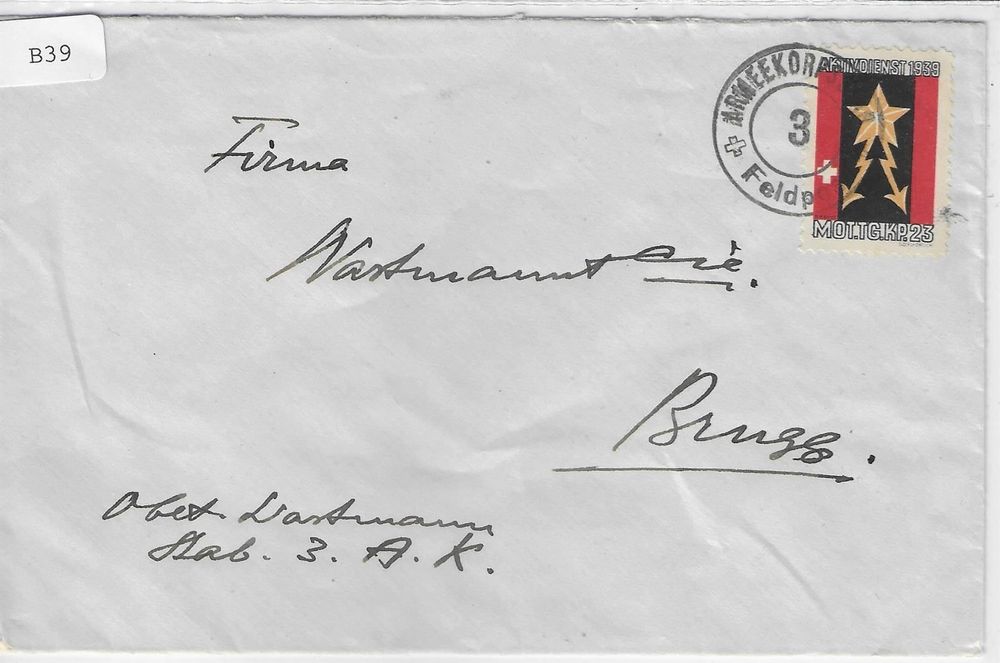 B39
ARMEEKORPS
3
Feldpo
AKTIVDIENST 1939
MOT.TG.KP.23
Firma
Wartmann & Cie.
Brugg.
Obst. Wartmann
Stab. 3. A. K.